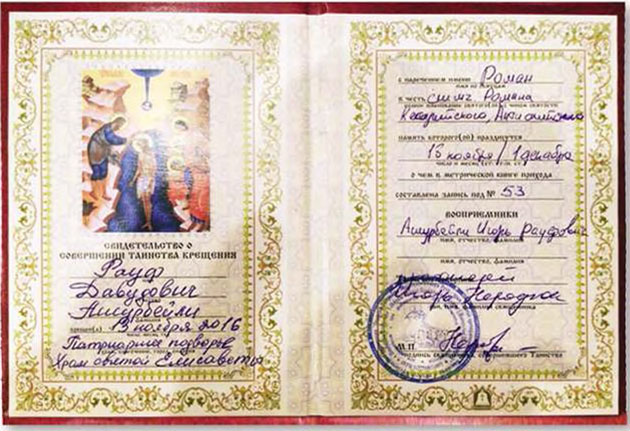 СВИДЕТЕЛЬСТВО О
СОВЕРШЕНИИ ТАИНСТВА КРЕЩЕНИЯ
Рауф
Давудович
Ашурбейли
13 ноября 2016
Патриаршее подворье
Храм святой Елисаветы
с наречением имени Роман
в честь сщмч Романа
Кесарийского, Антиохийского
память которого(ой) празднуется
18 ноября / 1 декабря
о чем в метрической книге прихода
составлена запись под № 53
ВОСПРИЕМНИКИ
Ашурбейли Игорь Рауфович
имя, отчество, фамилия
имя, отчество, фамилия
протоиерей
Игорь
М П
подпись священника, совершившего Таинство